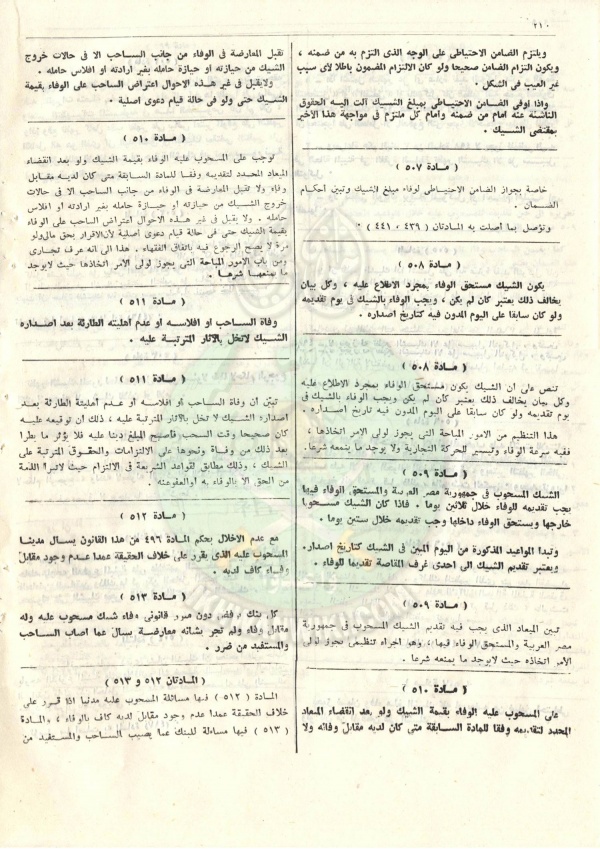 ٢١٠
ويلتزم الضامن الاحتياطى على الوجه الذى التزم به من ضمنه ،
ويكون التزام الضامن صحيحا ولو كان الالتزام المضمون باطلا لأى سبب
غير العيب فى الشكل .
واذا اوفى الضامن الاحتياطى بمبلغ الشيك آلت اليه الحقوق
الناشئة عنه امام من ضمنه وامام كل ملتزم فى مواجهة هذا الاخير
بمقتضى الشيك .
( مادة ٥٠٧ )
خاصة بجواز الضامن الاحتياطى لوفاء مبلغ الشيك وتبين أحكام
الضمان .
وتؤصل بما أصلت به المادتان ( ٤٣٩ ، ٤٤١ ) .
( مادة ٥٠٨ )
يكون الشيك مستحق الوفاء بمجرد الاطلاع عليه ، وكل بيان
يخالف ذلك يعتبر كان لم يكن ، ويجب الوفاء بالشيك فى يوم تقديمه
ولو كان سابقا على اليوم المدون فيه كتاريخ اصداره .
( مادة ٥٠٨ )
تنص على ان الشيك يكون مستحق الوفاء بمجرد الاطلاع عليه
وكل بيان يخالف ذلك يعتبر كان لم يكن ويجب الوفاء بالشيك فى
يوم تقديمه ولو كان سابقا على اليوم المدون فيه تاريخ اصداره .
هذا التنظيم من الامور المباحة التى يجوز لولى الامر اتخاذها ،
ففيه سرعة الوفاء وتيسير للحركة التجارية ولا يوجد ما يمنعه شرعا.
( مادة ٥٠٩ )
الشيك المسحوب فى جمهورية مصر العربية والمستحق الوفاء فيها
يجب تقديمه للوفاء خلال ثلاثين يوما . فاذا كان الشيك مسحوبا
خارجها ويستحق الوفاء داخلها وجب تقديمه خلال ستين يوما .
وتبدا المواعيد المذكورة من اليوم المبين فى الشيك كتاريخ اصداره.
ويعتبر تقديم الشيك الى احدى غرف المقاصة تقديما للوفاء .
( مادة ٥٠٩ )
تبين الميعاد الذى يجب فيه تقديم الشيك المسحوب فى جمهورية
مصر العربية والمستحق الوفاء فيها ، وهو اجراء تنظيمى يجوز لولى
الأمر اتخاذه حيث لايوجد ما يمنعه شرعا .
( مادة ٥١٠ )
على المسحوب عليه الوفاء بقيمة الشيك ولو بعد انقضاء الميعاد
المحدد لتقديمه وفقا للمادة السابقة متى كان لديه مقابل وفائه ولا
تقبل المعارضة فى الوفاء من جانب الساحب الا فى حالات خروج
الشيك من حيازته او حيازة حامله بغير ارادته او افلاس حامله .
ولايقبل فى غير هذه الاحوال اعتراض الساحب على الوفاء بقيمة
الشيك حتى ولو فى حالة قيام دعوى اصلية .
( مادة ٥١٠ )
توجب على المسحوب عليه الوفاء بقيمة الشيك ولو بعد انقضاء
الميعاد المحدد لتقديمه وفقا للمادة السابقة متى كان لديه مقابل
وفاء ولا تقبل المعارضة فى الوفاء من جانب الساحب الا فى حالات
خروج الشيك من حيازته او حيازة حامله بغير ارادته او افلاس
حامله . ولا يقبل فى غير هذه الاحوال اعتراض الساحب على الوفاء
بقيمة الشيك حتى فى حالة قيام دعوى اصلية لأن الاقرار بحق مالى ولو
مرة لا يصح الرجوع فيه باتفاق الفقهاء . هذا الى انه عرف تجارى
ومن باب الامور المباحة التى يجوز لولى الامر اتخاذها حيث لايوجد
ما يمنعها شرعا .
( مادة ٥١١ )
وفاة الساحب او افلاسه او عدم اهليته الطارئة بعد اصداره
الشيك لاتخل بالآثار المترتبة عليه .
( مادة ٥١١ )
تبين ان وفاة الساحب أو افلاسه أو عدم أهليته الطارئة بعد
اصداره الشيك لا تخل بالآثار المترتبة عليه ، ذلك ان توقيعه عليه
كان صحيحا وقت السحب فأصبح المبلغ دينا عليه فلا يؤثر ما يطرأ
بعد ذلك من وفاة ونحوها على الالتزامات والحقوق المترتبة على
الشيك ، وذلك مطابق لقواعد الشريعة فى الالتزام حيث لاتبرأ الذمة
من الحق الا بالوفاء به اوالعفوعنه .
( مادة ٥١٢ )
مع عدم الاخلال بحكم المادة ٤٩٦ من هذا القانون يسال مدنيا
المسحوب عليه الذى يقرر على خلاف الحقيقة عمدا عدم وجود مقابل
وفاء كاف لديه .
( مادة ٥١٣ )
كل بنك رفض دون مبرر قانونى وفاء شيك مسحوب عليه وله
مقابل وفاء ولم تجر بشانه معارضة يسال عما اصاب الساحب
والمستفيد من ضرر .
( المادتان ٥١٢ و ٥١٣ )
المادة ( ٥١٢ ) فيها مسائلة المسحوب عليه مدنيا اذا قرر على
خلاف الحقيقة عمدا عدم وجود مقابل لديه كاف بالوفاء ، والمادة
( ٥١٣ ) فيها مساءلة للبنك عما يصيب الساحب والمستفيد من